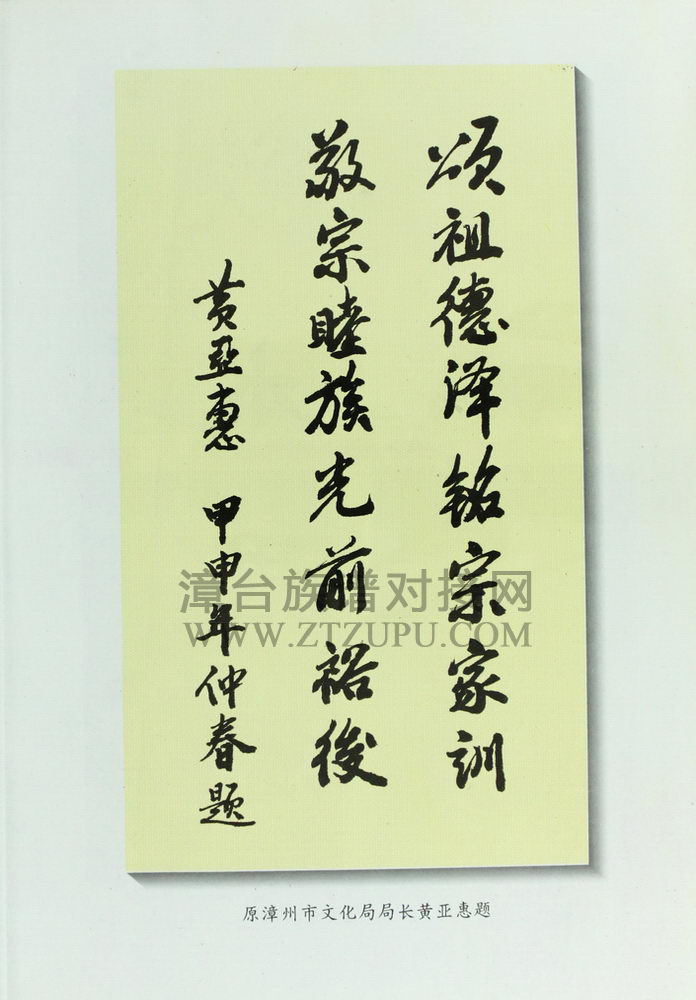 颂祖德泽铭宗家训
敬宗睦族光前裕後
黄亚惠 甲申年仲春题
漳台族谱对接网
WWW.ZTZUPU.COM
原漳州市文化局局长黄亚惠题